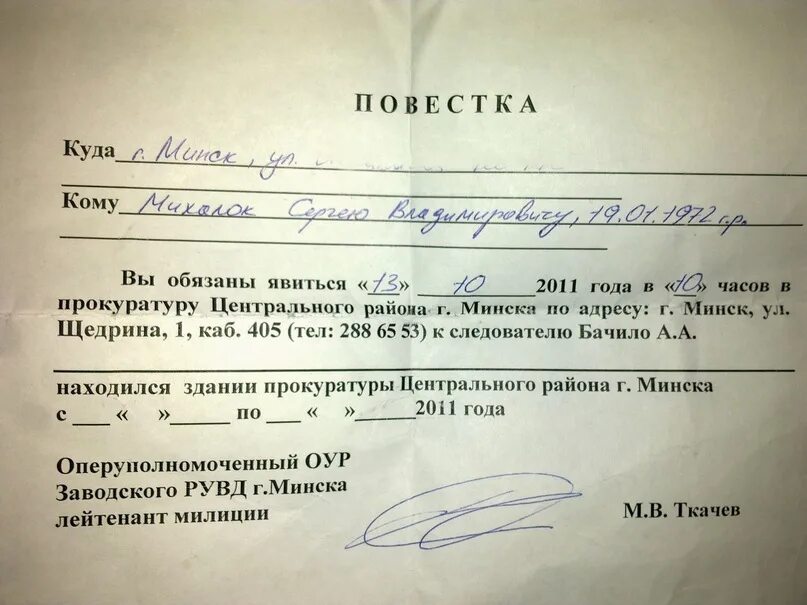 ПОВЕСТКА
Куда г. Минск, ул.
Кому Михалок Сергею Владимировичу, 19.01.1972 г.р.
Вы обязаны явиться «13» 10 2011 года в «10» часов в
прокуратуру Центрального района г. Минска по адресу: г. Минск, ул.
Щедрина, 1, каб. 405 (тел: 288 65 53) к следователю Бачило А.А.
находился здании прокуратуры Центрального района г. Минска
с ___ « »_____ по ___ « »_____2011 года
Оперуполномоченный ОУР
Заводского РУВД г.Минска
лейтенант милиции М.В. Ткачев